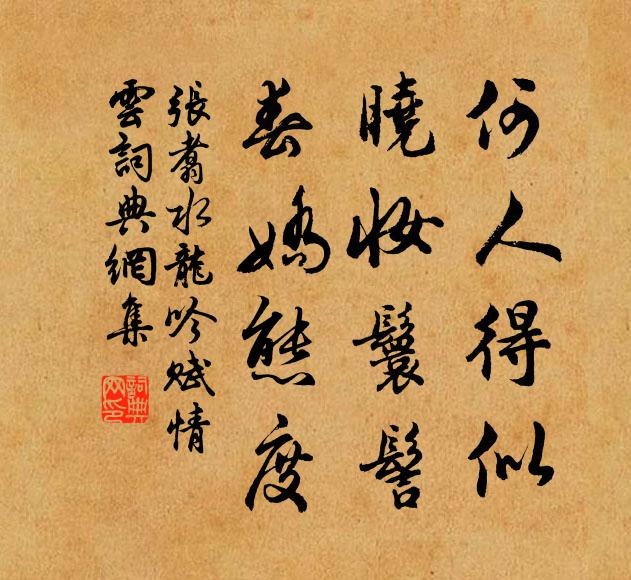 何人得似
曉妝鬟髻
春嬌態度
張翥水龍吟賦情
雲詞典網集
詞典網印